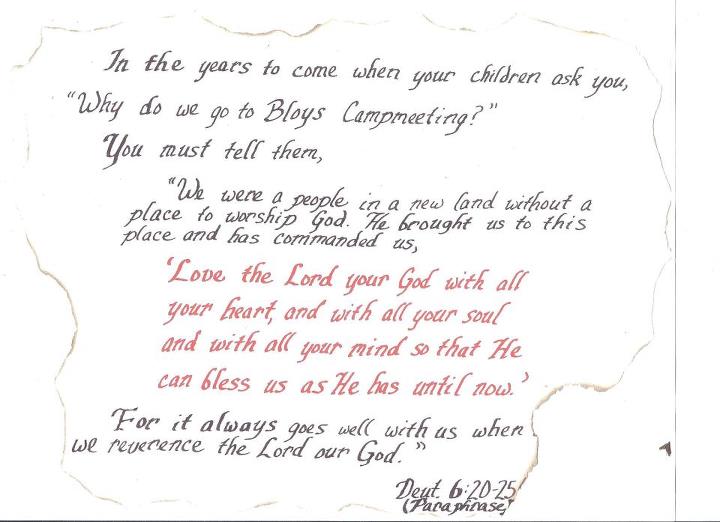 In the years to come when your children ask you,
"Why do we go to Bloys Campmeeting?"
You must tell them,
"We were a people in a new land without a
place to worship God. He brought us to this
place and has commanded us,
'Love the Lord your God with all
your heart, and with all your soul
and with all your mind so that He
can bless us as He has until now.'
For it always goes well with us when
we reverence the Lord our God."
Deut. 6:20-25
(Paraphrase)